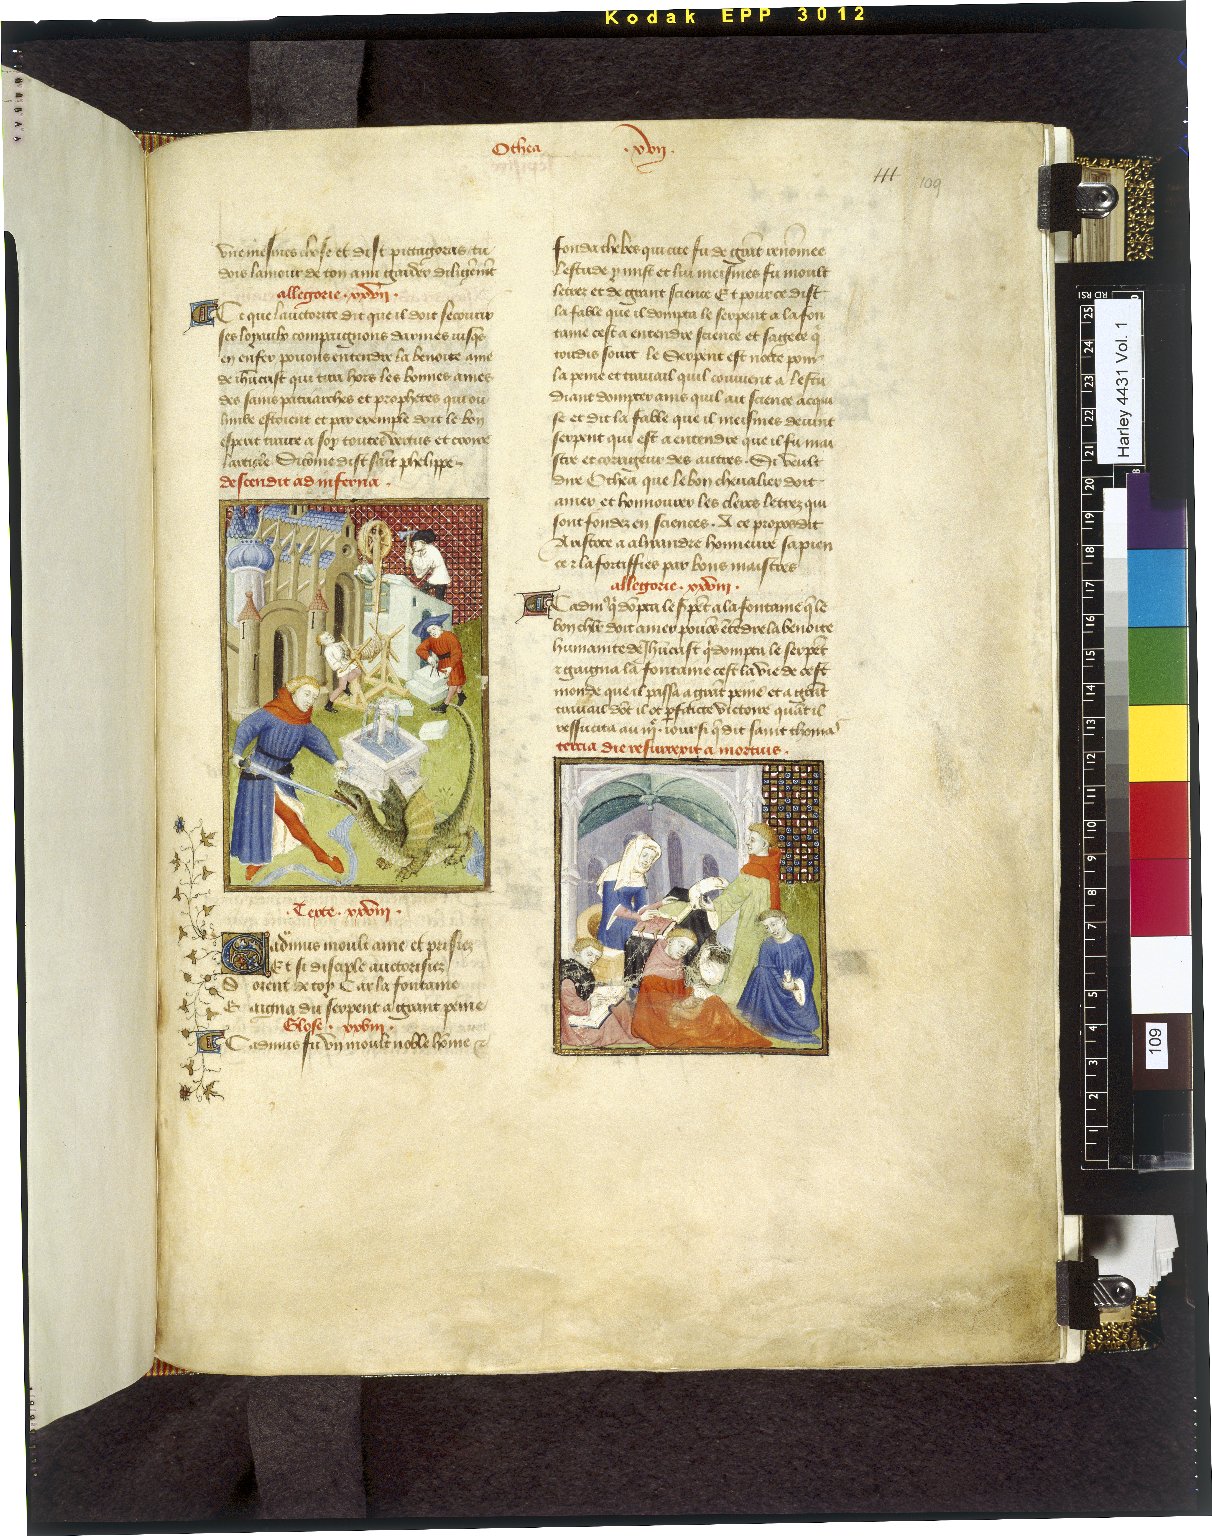 Kodak EPP 3012
Othea .xvii.
111 109
vne mesmes chose et dist pittagoras tu
dois lamour de ton ami garder diligẽmẽt
allegorie . xxvii .
Ce que lauctorite dit que il doit secourir
ses loyaulx compaignons darmes iusq̃s
en enfer pouons entendre la benoite ame
de ihũcrist qui tira hors les bonnes ames
des sains patriarches et prophetes qui ou
limbe estoient et par exemple doit le bon
esperit traire a soy toutes vertus et croire
larticle . Si cõme dist saĩt phelippe .
descendit ad inferna .
. Texte . xxviii .
Cadmus moult aime et prisiez
Et si disciple auctorisiez
Soient de toy Car la fontaine
Gaigna du serpent a grant peine
Glose . xxviii .
Cadmus fu vn moult noble hõme &
fonda thebes qui cite fu de grãt renõmee
lestude y mist et lui meismes fu moult
letrez et de grant science Et pource dist
la fable que il dompta le serpent a la fon
taine cest a entendre science et sagece q̃
toudis sourt le Serpent est notte pour
la peine et trauail quil couuient a lestu
diant dompter ains quil ait science acqui
se et dit la fable que il meismes deuint
serpent qui est a entendre que il fu mai
stre et corrigeur des autres . Si veult
dire Othea que le bon cheualier doit
amer et honnourer les clercs letrez qui
sont fondez en sciences . A ce propos dit
Aristote a alixandre honneure sapien
ce & la fortiffies par bons maistres
allegorie . xxviii .
Cadmus q̃ dõpta le serpẽt a la fontaine q̃ le
bon cheualier doit amer pouõs ẽtẽdre la benoite
humanite de Jhũcrist q̃ dompta le serpẽt
& gaigna la fontaine cest la vie de cest
monde que il passa a grãt peine et a grãt
trauail dõt il ot pfaicte victoire quãt il
ressucita au iii . iour si q̃ dit saint thomas
tercia die resurrexit a mortuis .
Harley 4431 Vol. 1
109